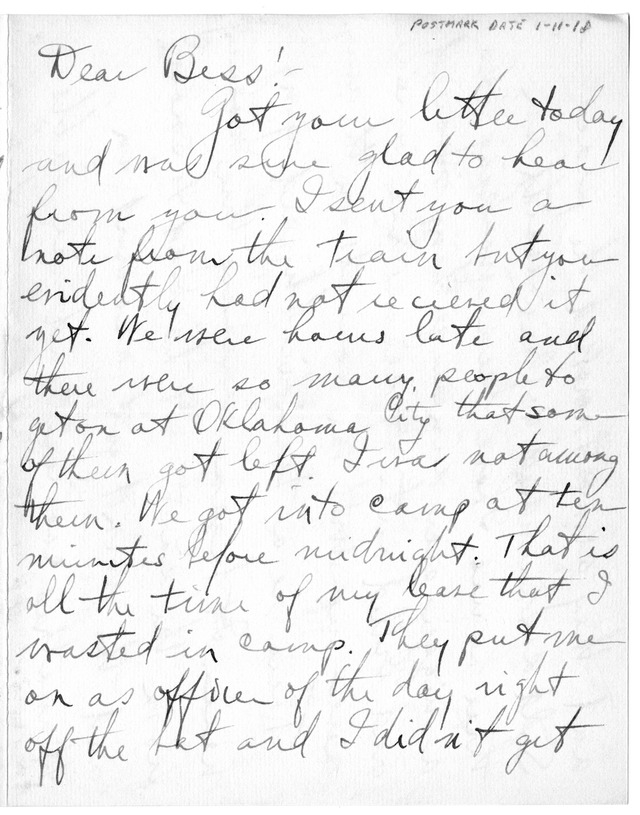 POSTMARK DATE 1-11-18
Dear Bess!-
Got your letter today
and was sure glad to hear
from you. I sent you a
note from the train but you
evidently had not recieved it
yet. We were hours late and
there were so many people to
get on at Oklahoma City that some
of them got left. I was not among
them. We got into camp at ten
minutes before midnight. That is
all the time of my leave that I
wasted in camp. They put me
on as officer of the day right
off the bat and I didn't get